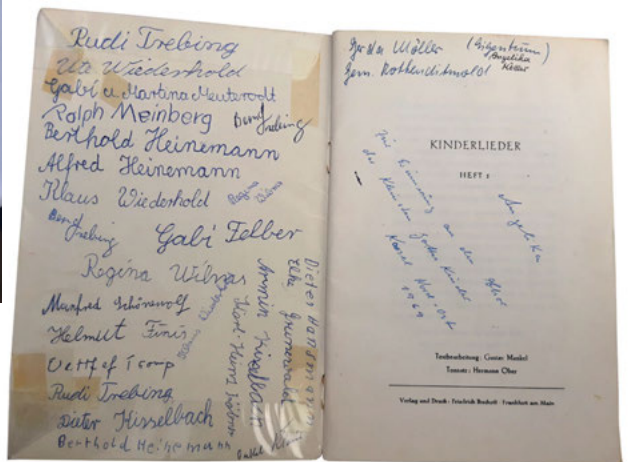 Rudi Trebing
Ute Wiederhold
Gabi u. Martina Meuterodt
Ralph Meinberg
Bernd Trebing
Berthold Heinemann
Alfred Heinemann
Klaus Wiederhold
Regina Wilnas
Bernd Trebing
Gabi Felber
Regina Wilnas
Manfred Schönewolf
Helmut Finis
Rudi Trebing
Dieter Hisselbach
Berthold Heinemann
Dieter Hansmann
Elke Grunewald
Armin Kisselbach
Karl Heinz
Gerda Möller (Eigentum)
Angelika
Keller
Gem. Rothenditmold
KINDERLIEDER
HEFT 2
Zur Erinnerung an den
der Kleinsten Kinder
Kassel Nord-Ost
1969
Angelika
Textbearbeitung: Gustav Mankel
Tonsatz: Hermann Ober
Verlag und Druck: Friedrich Bischoff · Frankfurt am Main